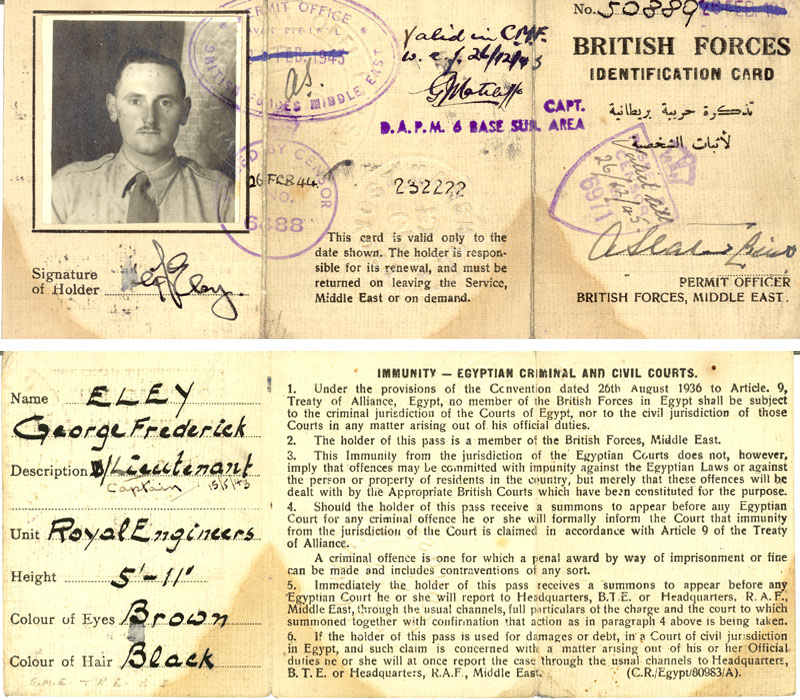 PERMIT OFFICE
FEB. 1943
BRITISH FORCES MIDDLE EAST
Valid in C.M.F.
w.e.f. 26/12/43
CAPT.
D.A.P.M. 6 BASE SUB. AREA
26 FEB 44
BY CENSOR
NO.
6488
232222
Signature
of Holder
This card is valid only to the
date shown. The holder is respon-
sible for its renewal, and must be
returned on leaving the Service,
Middle East or on demand.
No. 50889
BRITISH FORCES
IDENTIFICATION CARD
تذكرة حربية بريطانية
لأثبات الشخصية
Valid till
26/12/45
PERMIT OFFICER
BRITISH FORCES, MIDDLE EAST.
Name ELEY
George Frederick
Description Lieutenant
Captain 15/5/43
Unit Royal Engineers
Height 5'-11"
Colour of Eyes Brown
Colour of Hair Black
IMMUNITY — EGYPTIAN CRIMINAL AND CIVIL COURTS.
1. Under the provisions of the Convention dated 26th August 1936 to Article. 9,
Treaty of Alliance, Egypt, no member of the British Forces in Egypt shall be subject
to the criminal jurisdiction of the Courts of Egypt, nor to the civil jurisdiction of those
Courts in any matter arising out of his official duties.
2. The holder of this pass is a member of the British Forces, Middle East.
3. This Immunity from the jurisdiction of the Egyptian Courts does not, however,
imply that offences may be committed with impunity against the Egyptian Laws or against
the person or property of residents in the country, but merely that these offences will be
dealt with by the Appropriate British Courts which have been constituted for the purpose.
4. Should the holder of this pass receive a summons to appear before any Egyptian
Court for any criminal offence he or she will formally inform the Court that immunity
from the jurisdiction of the Court is claimed in accordance with Article 9 of the Treaty
of Alliance.
A criminal offence is one for which a penal award by way of imprisonment or fine
can be made and includes contraventions of any sort.
5. Immediately the holder of this pass receives a summons to appear before any
Egyptian Court he or she will report to Headquarters, B.T.E. or Headquarters, R. A. F.,
Middle East, through the usual channels, full particulars of the charge and the court to which
summoned together with confirmation that action as in paragraph 4 above is being taken.
6. If the holder of this pass is used for damages or debt, in a Court of civil jurisdiction
in Egypt, and such claim is concerned with a matter arising out of his or her Official
duties he or she will at once report the case through the usual channels to Headquarters,
B. T. E. or Headquarters, R.A.F., Middle East. (C.R./Egypt/80983/A).